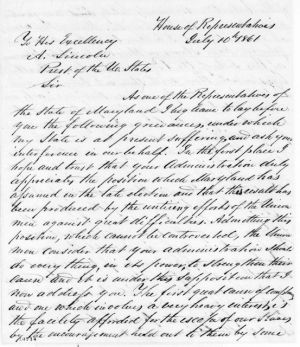 House of Representatives
July 10th 1861
To His Excellency
A. Lincoln
Prest of the U. States
Sir
As one of the Representatives of
the State of Maryland I beg leave to lay before
you the following grievances under which
my State is at present suffering, and ask your
interference in our behalf. In the first place I
hope and trust that your Administration duly
appreciate the position which Maryland has
assumed in the late election and that this result has
been produced by the untiring efforts of the Union
men against great difficulties. Admitting this
position, which cannot be controverted, the Union
men consider that your administration should
do every thing, in its power, to strengthen their
cause and it is under this supposition that I
now address you. The first great cause of complaint
and one which involves a very heavy interest, is
the facility afforded for the escape of our Slaves
by the encouragement held out to them by some